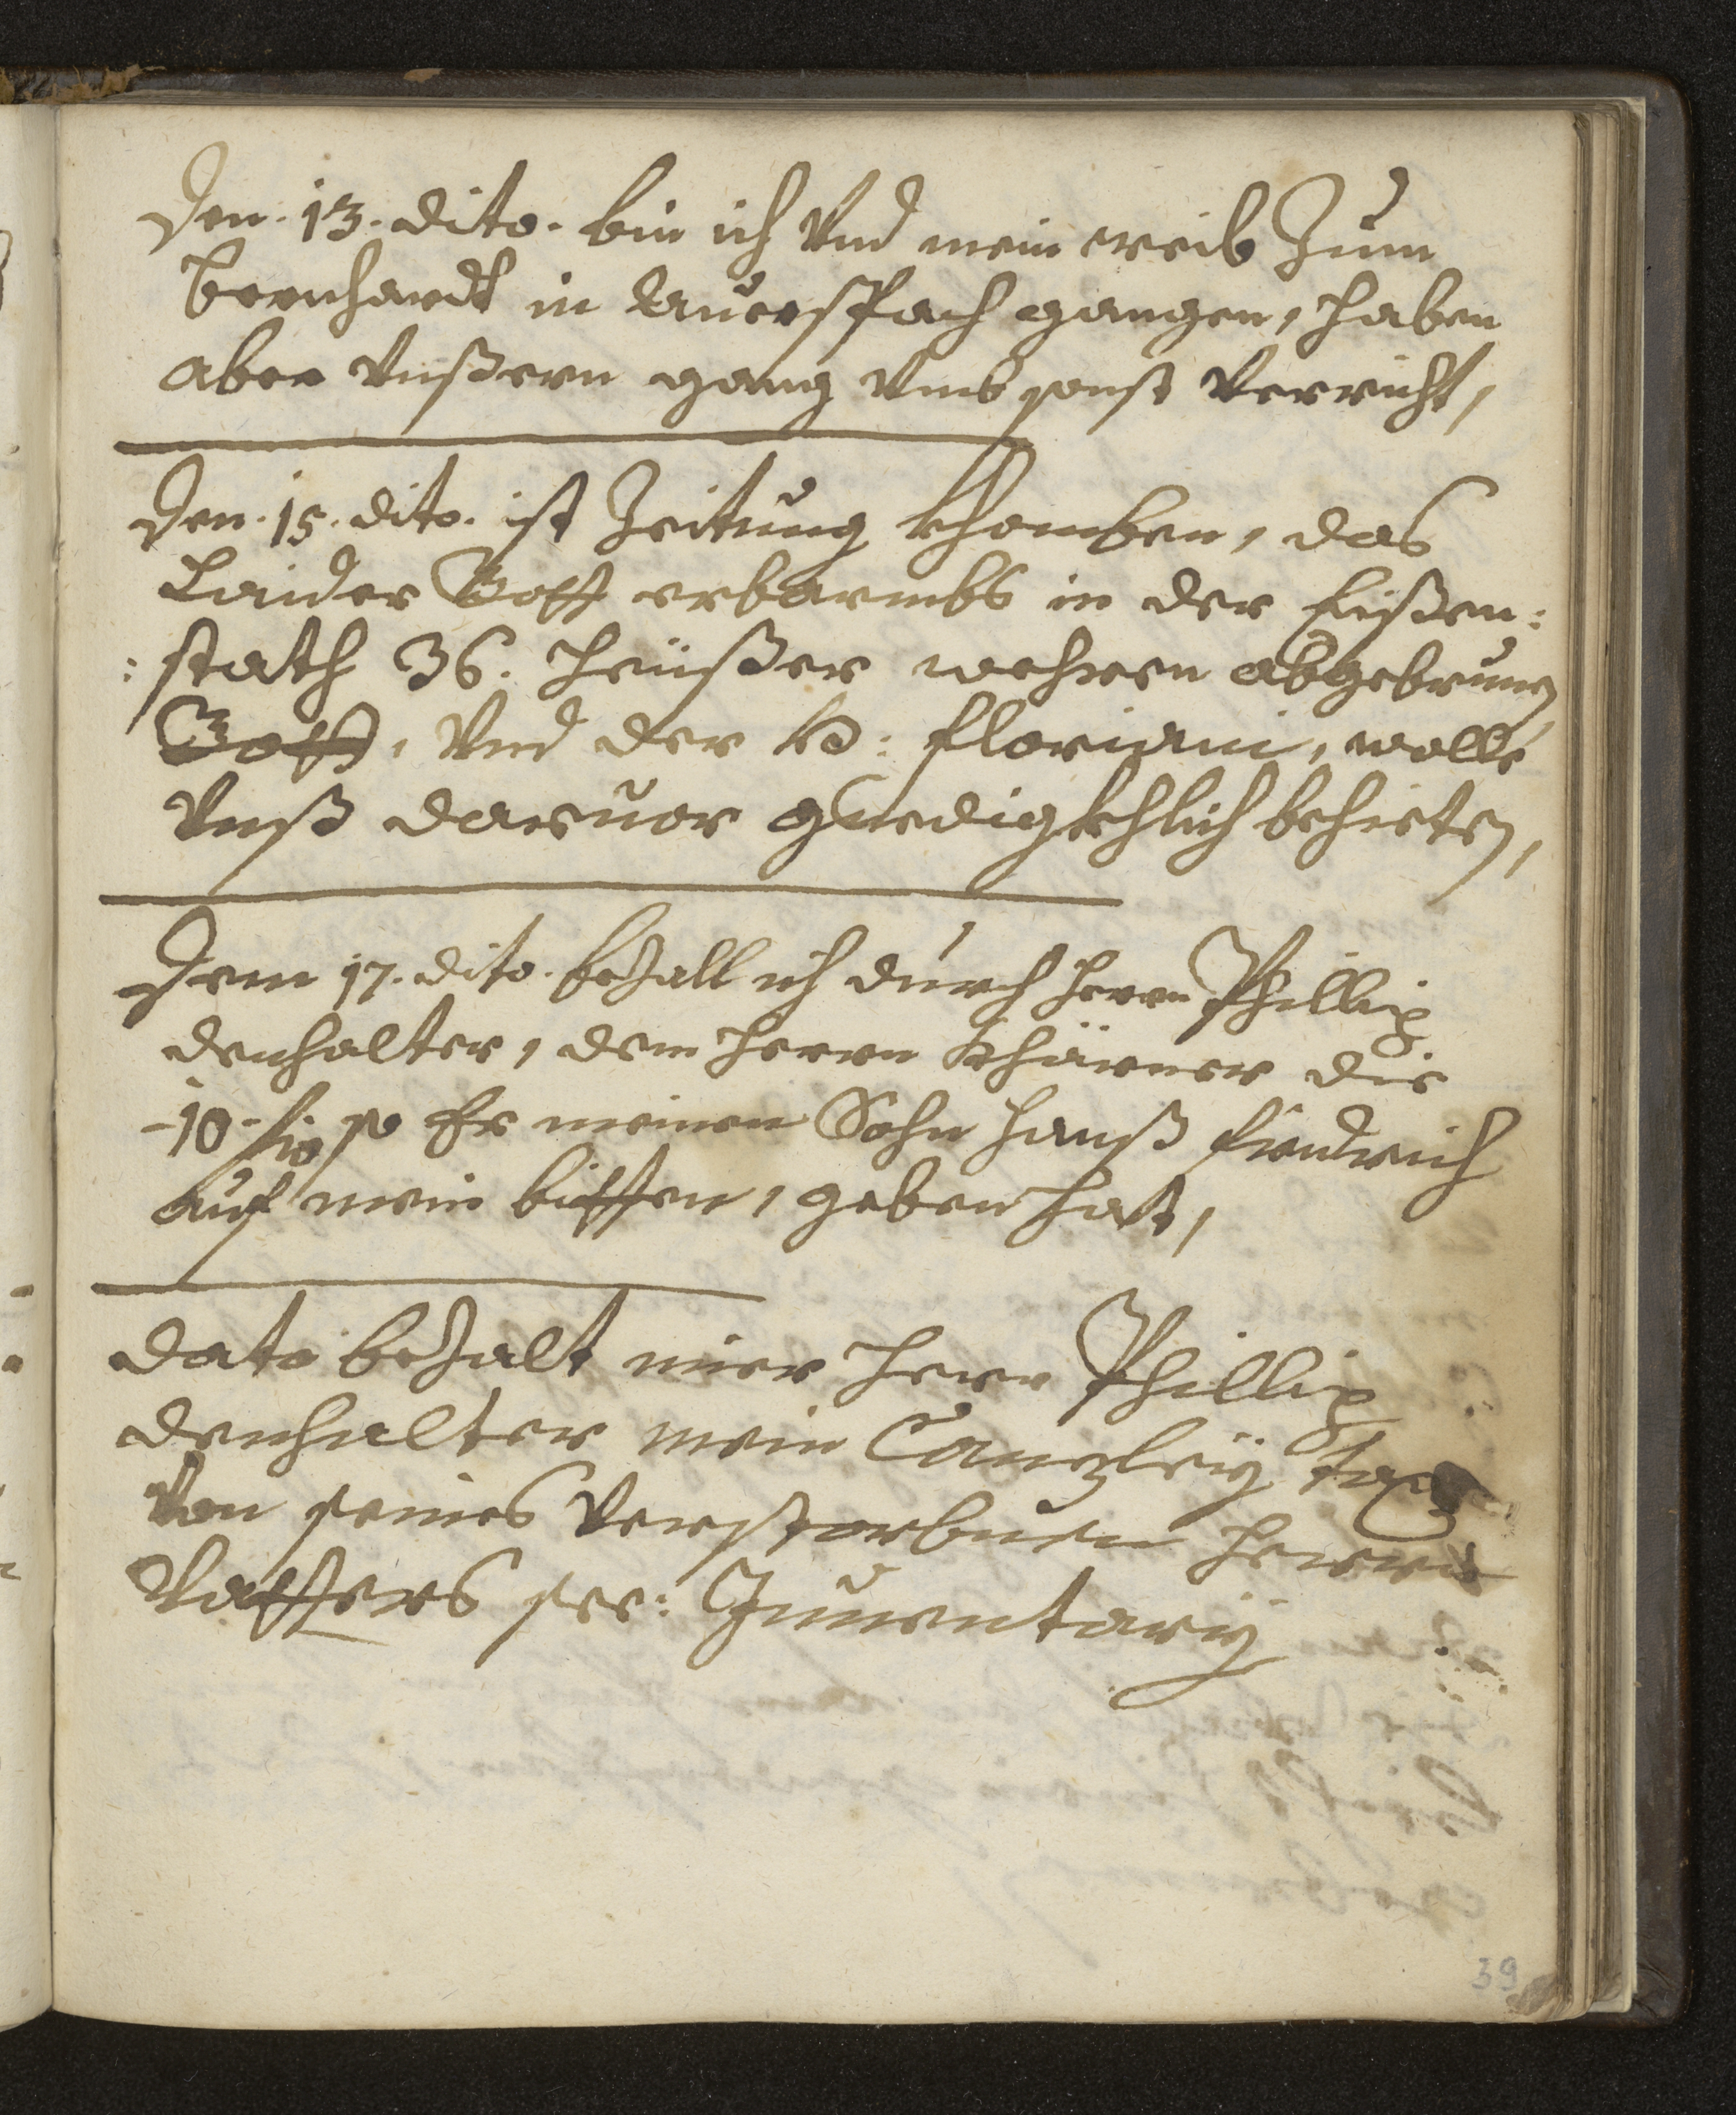 Den. 13. dito. bin ich Vnd mein weib Zum
bernhardt in Lauerspach gangen, haben
aber Vnßern gang Vmbsonst Verricht,
Den. 15. dito. ist Zeitung khomben, das
Laider Gott erbarmbs in der Eißen:
:stath 36. heüßer wehren abgebrunen
Gott, Vnd der H: floriani, wolle
Vnß daruor gnedigkhlich behieten,
Dem 17. dito. bezall ich durch herrn Phillip
denhalter, dem herrn Khärner die
-10. so Er meinen Sohn hanß fridrich
auf mein bitten, geben hat,
dato bezalt mier herr Phillip
denhalter mein Canzleÿ tax
Von seines Verstorbnen herrn
Vatters see: Inuentarÿ
39